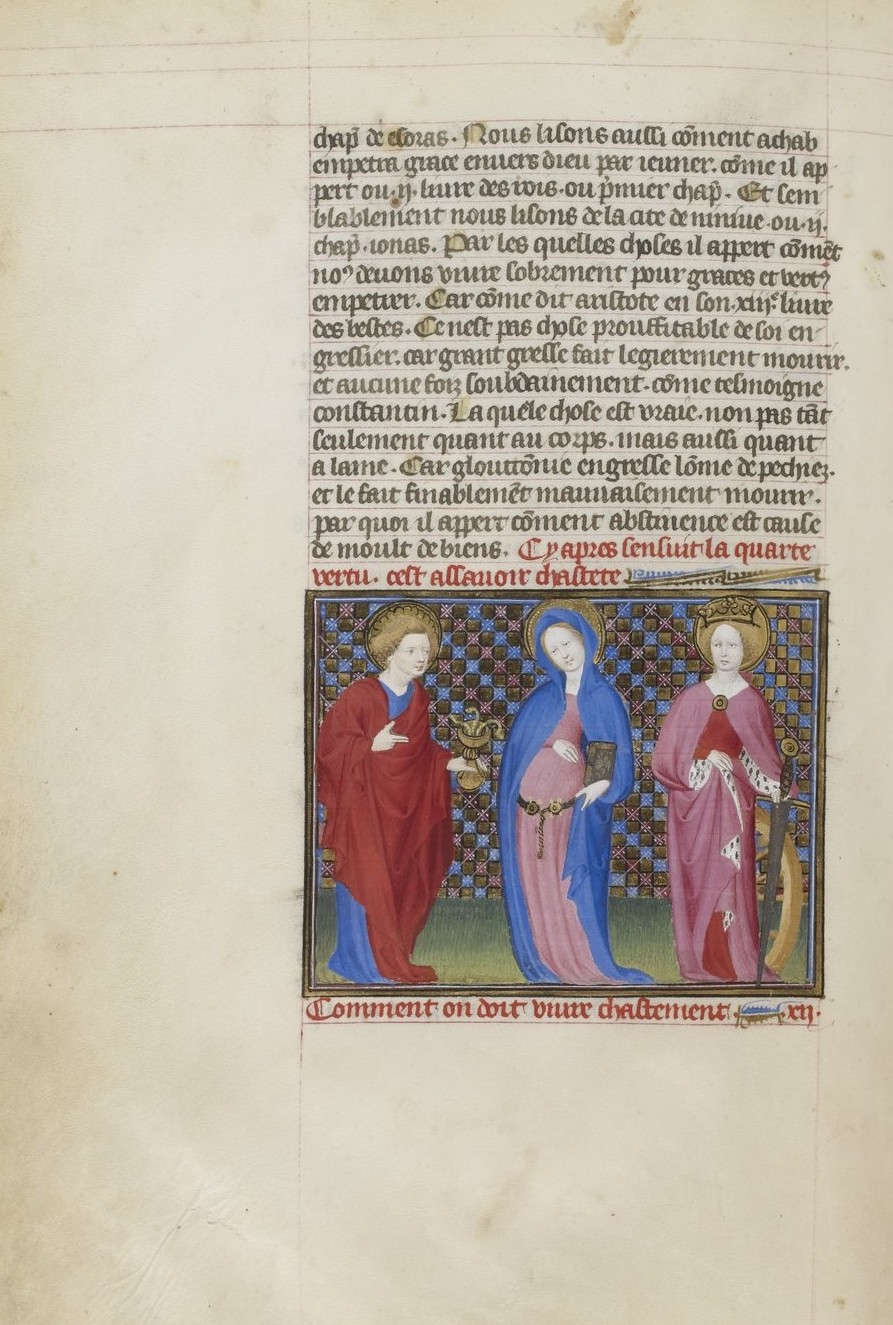 chap̃ de esdras. Nous lisons aussi cõment achab
empetra grace enuers dieu par ieuner. cõme il ap
pert ou .ij. liure des rois. ou p̃mier chap̃. Et sem
blablement nous lisons de la cite de niniue. ou .ij.
chap̃. ionas. Par les quelles choses il appert cõmẽt
noꝰ deuons viure sobrement pour graces et vertꝰ
empetrer. Car cõme dit aristote en son .xiiij.e liure
des bestes. Ce nest pas chose prouffitable de soi en
gressier. car grant gresse fait legierement mourir.
et aucune foiz soubdainement. cõme tesmoigne
constantin. La quele chose est vraie. non pas tãt
seulement quant au corps. mais aussi quant
a lame. Car glouttõnie engresse lõme de pechiez.
et le fait finablemẽt mauuaisement mourir.
par quoi il appert cõment abstinence est cause
de moult de biens. Cy apres sensuit la quarte
vertu. cest assauoir chastete
Comment on doit viure chastement .xij.